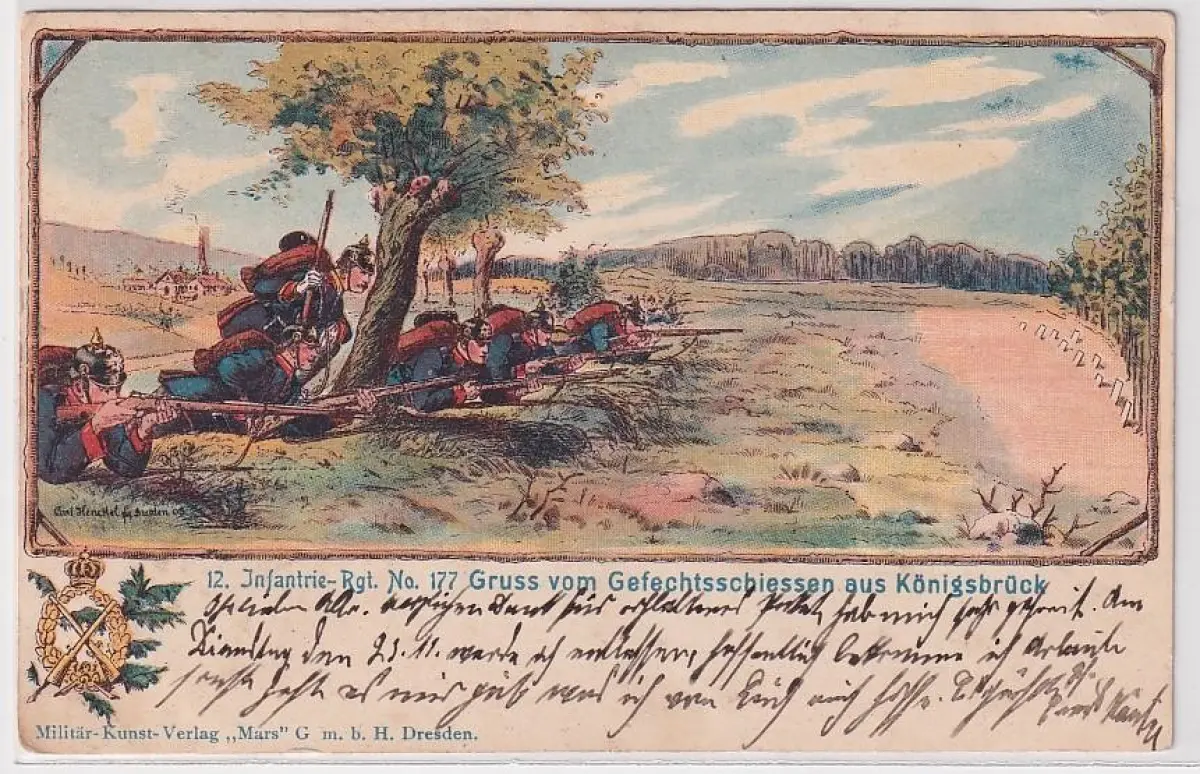 Carl Henckel Dresden 03
12. Infantrie-Rgt. No. 177 Gruss vom Gefechtsschiessen aus Königsbrück
Ihr lieben Alle. herzlichen Dank fürs erhaltene Paket, hab mich sehr gefreut. Am
Dienstag den 23. 11. werde ich entlassen, hoffentlich bekomme ich Urlaub
sonst geht es mir gut was ich von Euch auch hoffe. Es grüßt
Militär-Kunst-Verlag „Mars" G m. b. H. Dresden.